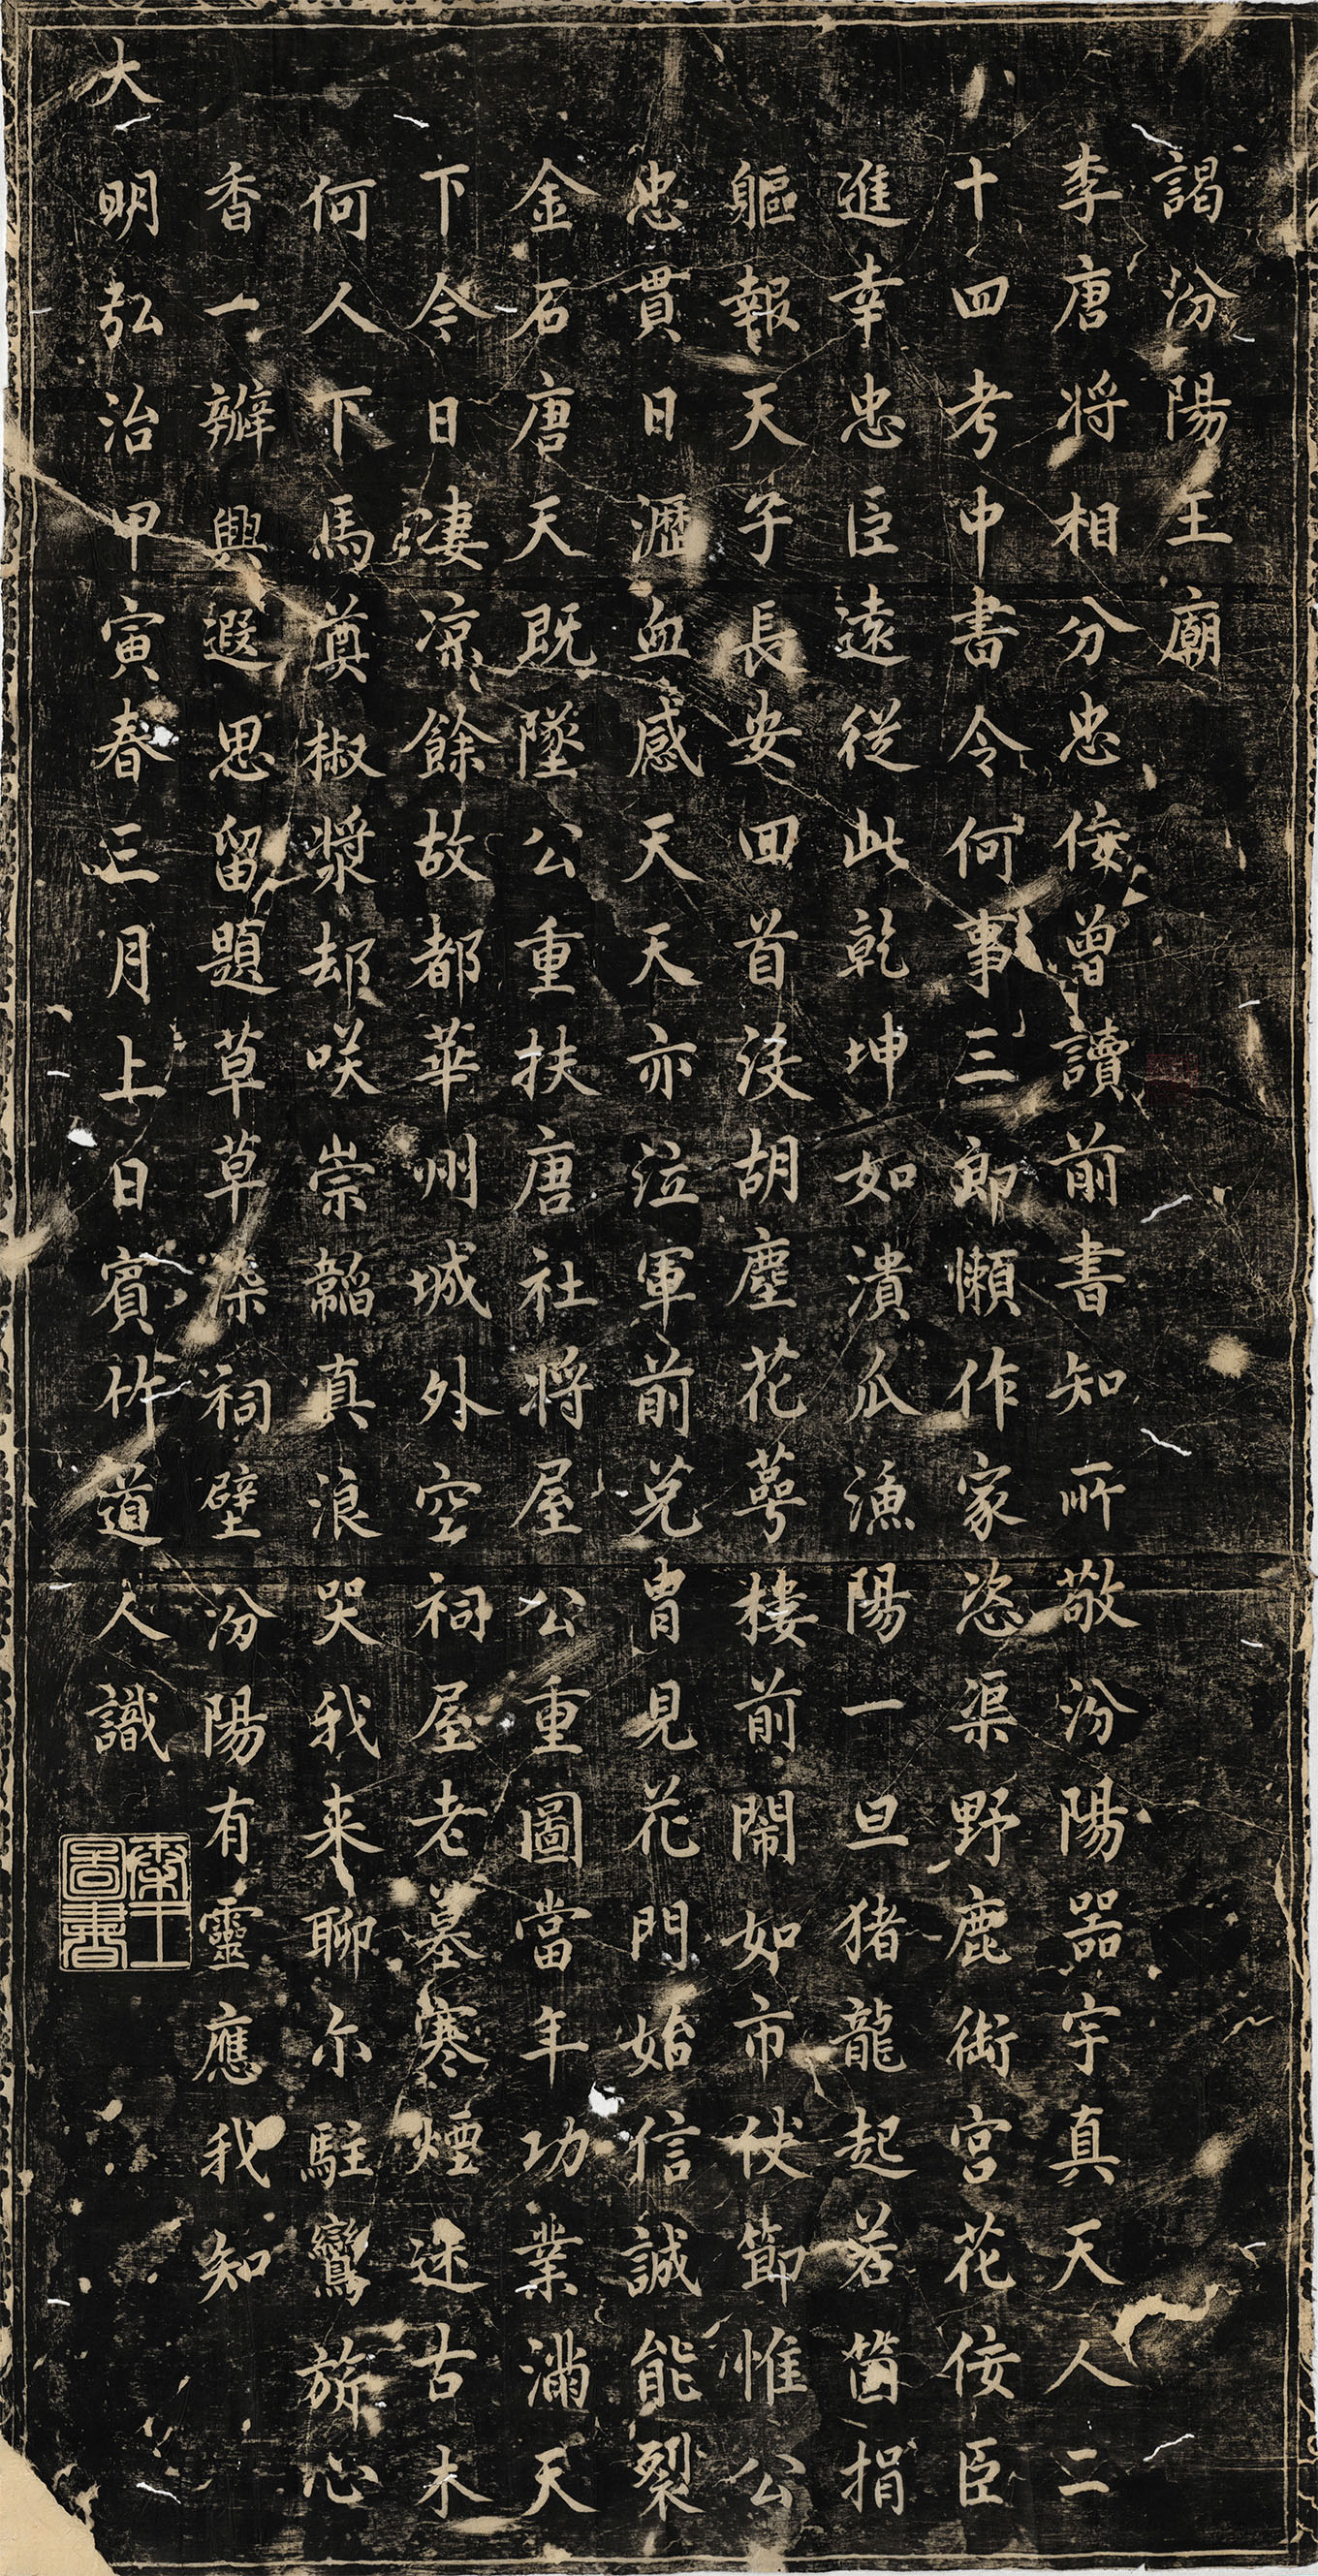 謁汾陽王廟
李唐將相分忠佞曾讀前書知所敬汾陽器宇真天人二
十四考中書令何事三郎懶作家恣渠野鹿銜宮花佞臣
進幸忠臣遠從此乾坤如潰瓜漁陽一旦猪龍起若箇捐
軀報天子長安回首沒胡塵花萼樓前鬧如市伏節惟公
忠貫日瀝血感天天亦泣軍前免冑見花門始信誠能裂
金石唐天既墜公重扶唐社將屋公重圖當年功業滿天
下今日凄凉餘故都華州城外空祠屋老墓寒煙迷古木
何人下馬奠椒漿却咲崇韜真浪哭我来聊尔駐鸞旂心
香一瓣興遐思留題草草染祠壁汾陽有靈應我知
大明弘治甲寅春三月上日賓竹道人識
秦王圖書